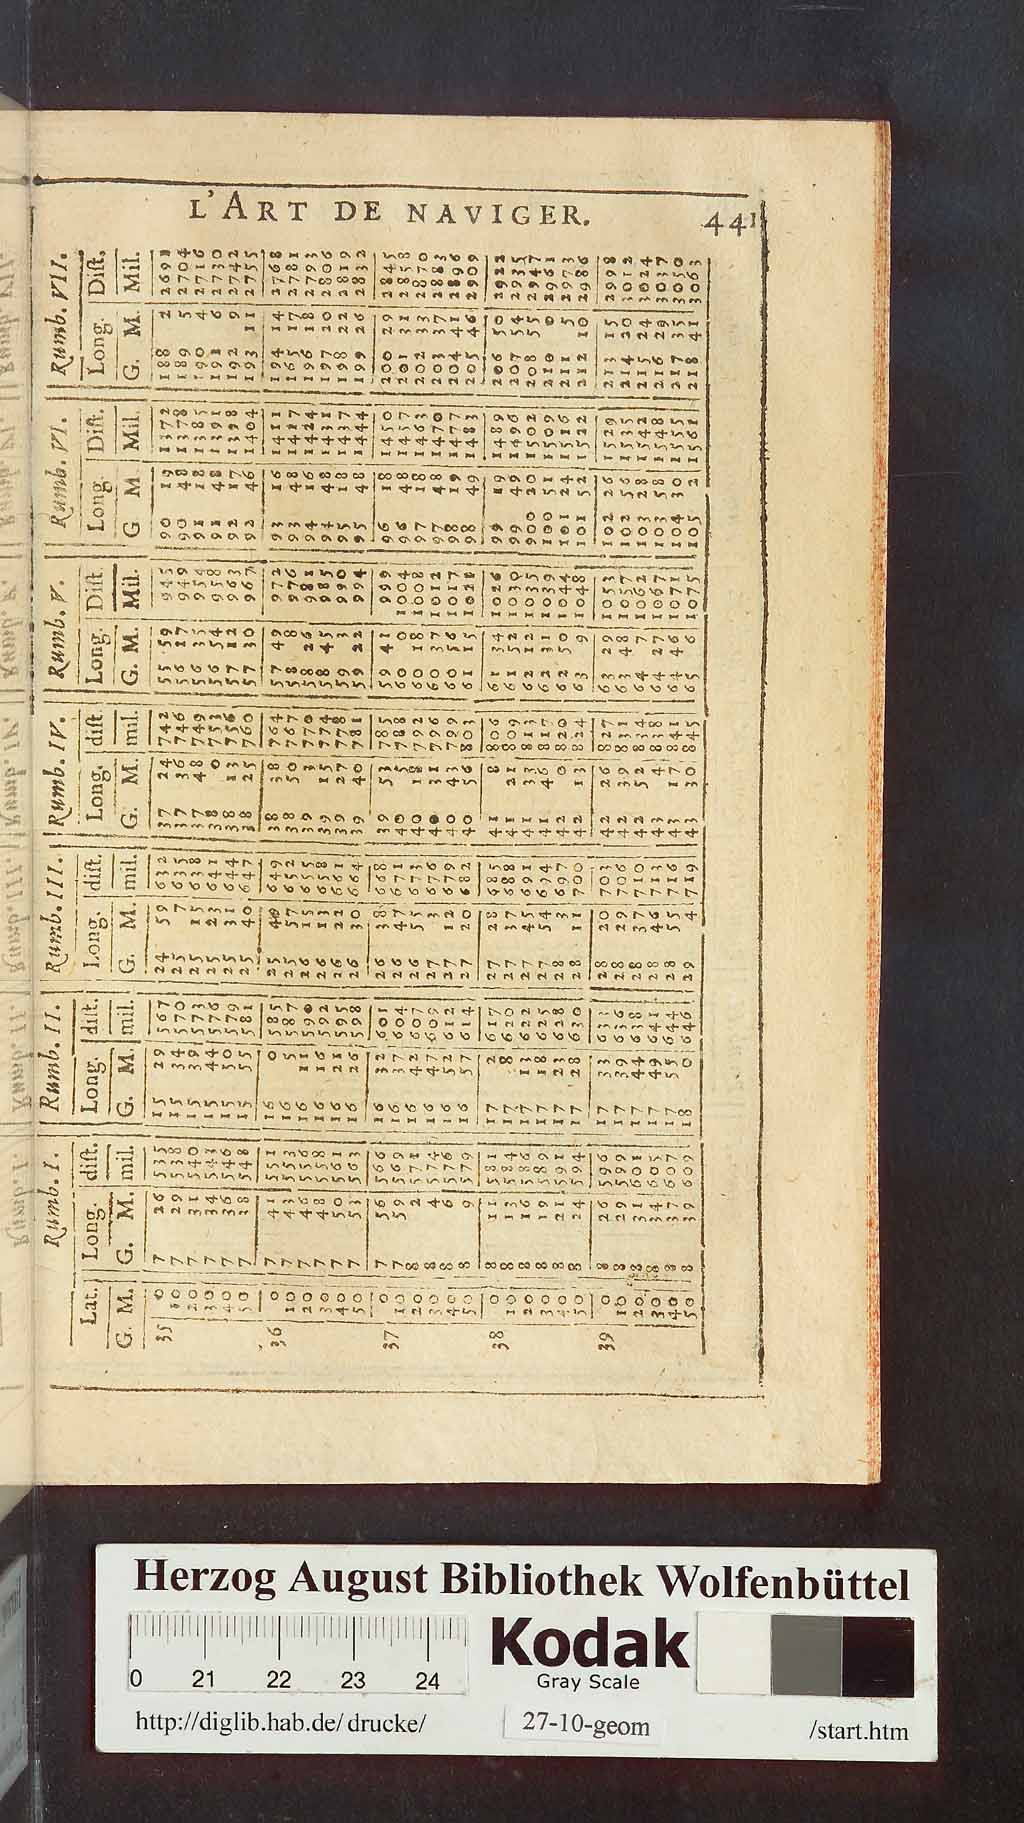 L'ART DE NAVIGER. 441
Rumb. I. Rumb. II. Rumb. III. Rumb. IV. Rumb. V. Rumb. VI. Rumb. VII.
Lat. Long. dist. Long. dist. Long. dist. Long. dist Long. Dist Long. Dist. Long. Dist.
G. M. G. M. mil. G. M. mil. G. M. mil. G. M. mil. G. M. Mil. G M Mil. G. M. Mil.
35 0 7 26 535 15 29 567 24 59 632 37 24 742 55 59 945 90 19 1372 188 2 2691
10 7 29 538 15 34 570 25 7 635 37 36 746 56 17 949 90 48 1378 189 5 2704
20 7 31 540 15 39 573 25 15 638 37 48 749 56 35 954 91 18 1385 190 4 2716
30 7 34 543 15 44 576 25 23 641 38 0 753 56 54 958 91 48 1391 191 6 2730
40 7 36 546 15 50 579 25 31 644 38 13 756 57 12 963 92 17 1398 192 9 2742
50 7 38 548 15 55 581 25 40 647 38 25 760 57 30 967 92 46 1404 193 11 2755
36 0 7 41 551 16 0 585 25 49 649 38 38 764 57 49 972 93 16 1411 194 14 2768
10 7 43 553 16 5 587 25 57 652 38 50 767 58 8 976 93 48 1417 165 17 2781
20 7 46 556 16 11 590 26 15 655 39 3 770 58 26 981 94 16 1424 196 18 2793
30 7 48 558 16 16 592 26 13 658 39 15 774 58 45 985 94 48 1431 197 20 2806
40 7 50 561 16 21 595 26 22 661 39 27 778 59 3 990 95 18 1437 198 22 2819
50 7 53 563 16 26 598 26 30 664 39 40 781 59 22 994 95 48 1444 199 26 2832
37 0 7 56 566 16 32 601 26 38 668 39 53 785 59 41 999 96 18 1450 200 29 2845
10 7 59 569 16 37 604 26 47 671 40 5 788 60 0 1004 96 48 1457 201 31 2858
20 8 2 571 16 42 607 26 55 673 40 18 792 60 18 1008 97 18 1463 202 33 2870
30 8 4 574 16 47 609 27 3 676 40 31 796 60 37 1012 97 48 1470 203 37 2883
40 8 6 576 16 52 612 27 12 679 40 43 799 60 56 1017 98 19 1477 204 41 2896
50 8 9 579 16 57 614 27 20 682 40 56 803 61 15 1021 98 49 1483 205 46 2909
38 0 8 11 581 17 2 617 27 28 685 41 8 806 61 34 1026 99 19 1489 206 50 2922
10 8 13 584 17 8 620 27 37 688 41 21 809 61 52 1030 99 49 1496 207 54 2935
20 8 16 586 17 13 622 27 45 691 41 33 813 62 12 1035 900 20 1502 208 55 2947
30 8 19 589 17 18 625 27 54 694 41 46 817 62 31 1039 100 51 1509 210 0 2961
40 8 21 591 17 23 628 28 3 697 42 0 820 62 50 1044 101 24 1516 211 5 2973
50 8 24 594 17 28 630 28 11 700 42 13 824 63 9 1048 101 52 1522 212 10 2986
39 0 8 26 596 17 33 633 28 20 703 42 26 827 63 29 1053 102 26 1529 213 15 2998
10 8 29 599 17 39 636 28 29 706 42 39 831 63 48 1057 102 56 1535 214 20 3012
20 8 31 601 17 44 638 28 37 710 42 52 834 64 7 1062 103 28 1542 215 24 3024
30 8 34 605 17 49 641 28 46 713 43 4 838 64 27 1067 103 58 1548 216 29 3037
40 8 37 607 17 55 644 28 55 716 43 17 841 64 46 1071 104 30 1555 217 35 3050
50 8 39 609 18 0 646 29 4 719 43 30 845 65 6 1075 105 2 1561 218 41 3063
Herzog August Bibliothek Wolfenbüttel
0 21 22 23 24
Kodak
Gray Scale
http://diglib.hab.de/drucke/ 27-10-geom /start.htm